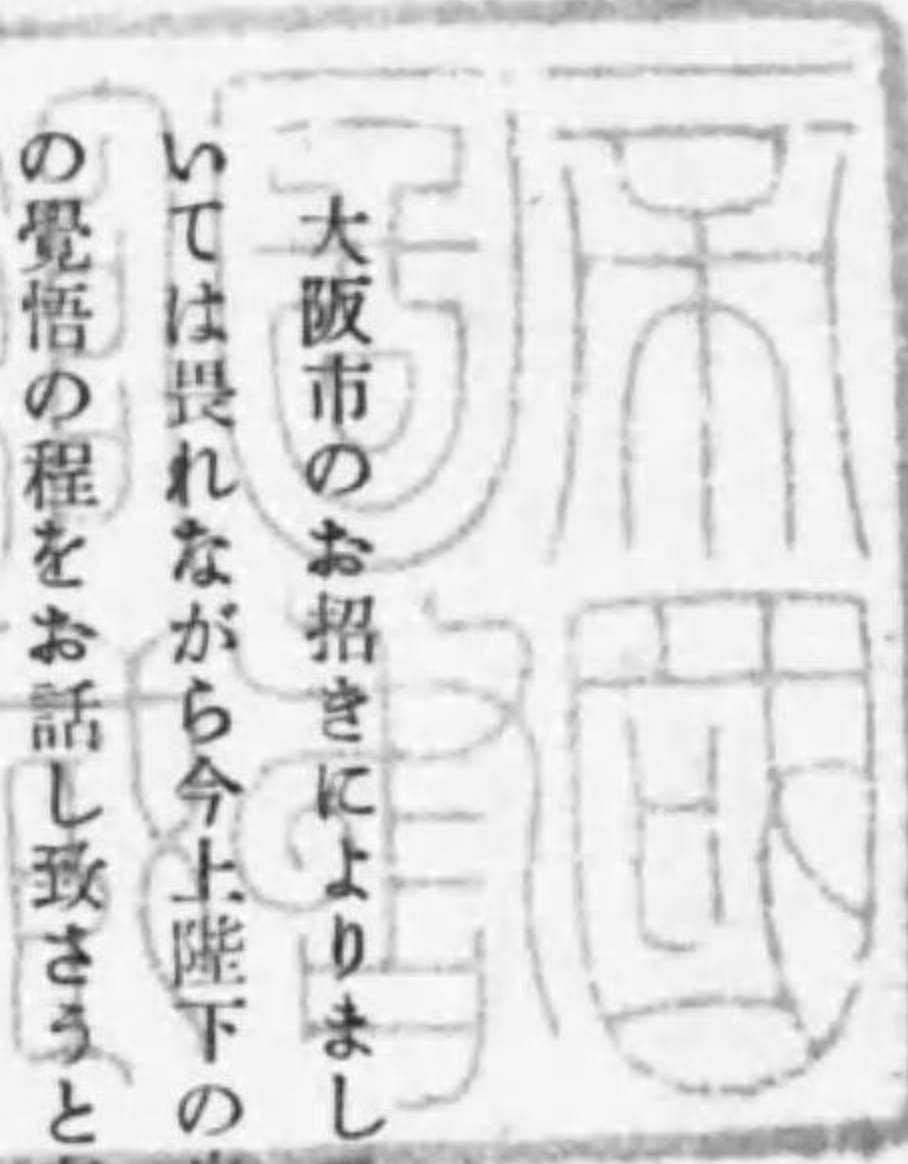 帝國
大阪市のお招きによりまし
いては畏れながら今上陛下の
の覺悟の程をお話し致さうと